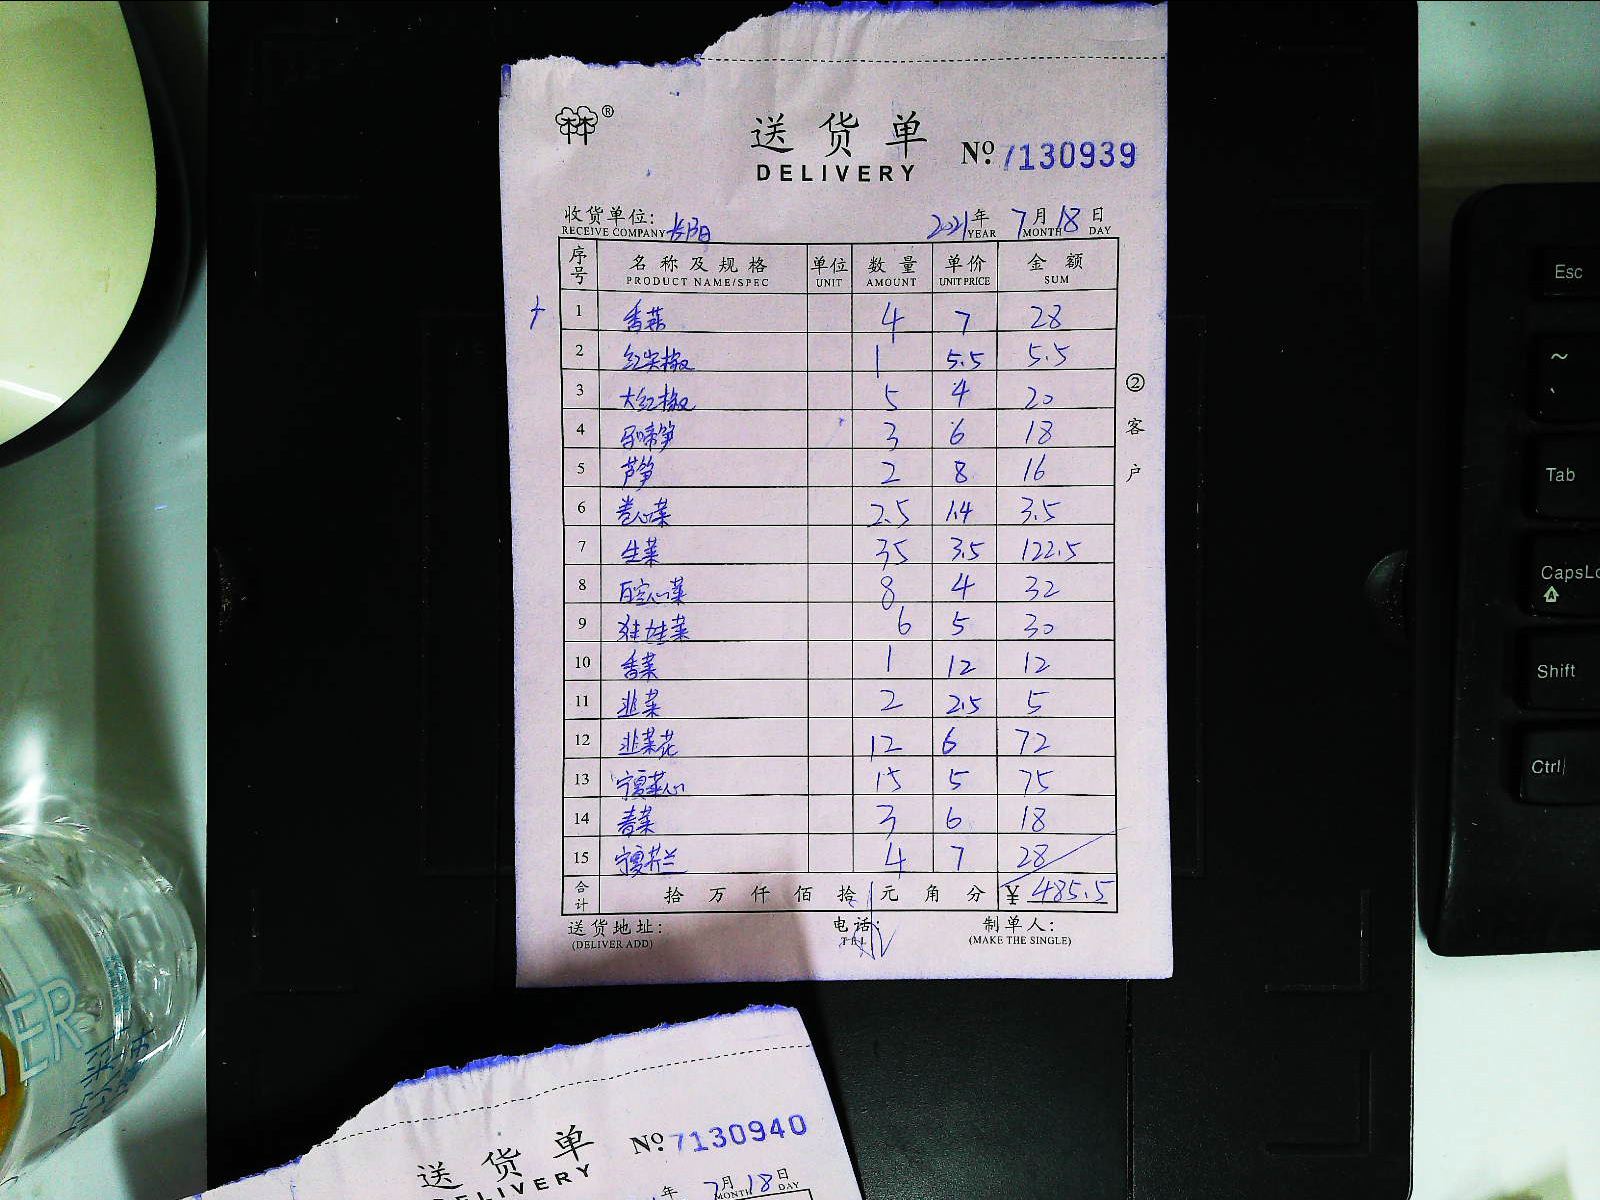 ®
送货单
DELIVERY
No. 7130939
收货单位: 长阳
RECEIVE COMPANY
2021年 7月 18日
YEAR MONTH DAY
序号 名称及规格 单位 数量 单价 金额
PRODUCT NAME/SPEC UNIT AMOUNT UNIT PRICE SUM
1 香菇 4 7 28
2 红尖椒 1 5.5 5.5
3 大红椒 5 4 20
4 马蹄笋 3 6 18
5 芦笋 2 8 16
6 卷心菜 2.5 1.4 3.5
7 生菜 35 3.5 122.5
8 白空心菜 8 4 32
9 娃娃菜 6 5 30
10 香菜 1 12 12
11 韭菜 2 2.5 5
12 韭菜花 12 6 72
13 宁夏菜心 15 5 75
14 青菜 3 6 18
15 宁夏芥兰 4 7 28
合计 拾 万 仟 佰 拾 元 角 分 ¥ 485.5
送货地址: 电话: 制单人:
(DELIVER ADD) TEL (MAKE THE SINGLE)
② 客户
送货单
DELIVERY
No. 7130940
年 7月 18日
MONTH DAY
Esc
~
Tab
CapsLo
Shift
Ctrl
ER